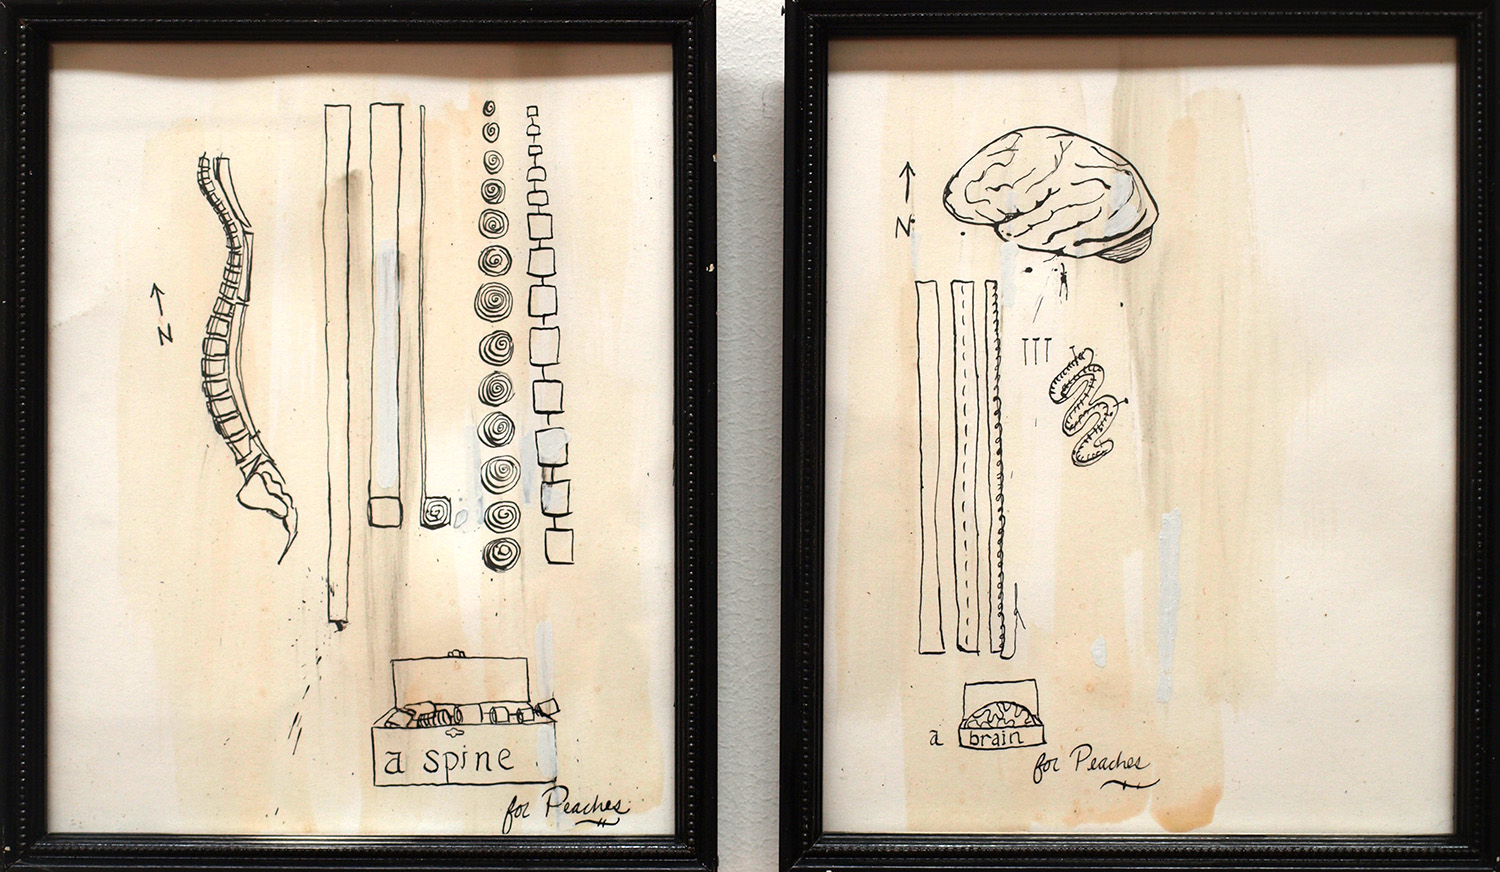 N
a spine
for Peaches
N
a brain
for Peaches